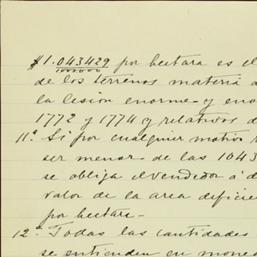 $1.043429/1000000 por hectara es el
de los terrenos materia d
la lesión enorme y eno
1772 y 1774 y relativos d
11ª Si por cualquier motivo r
ser menor de las 1043
se obliga el vendedor á d
valor de la area defici
por hectara.
12ª Todas las cantidades
se entienden en mone